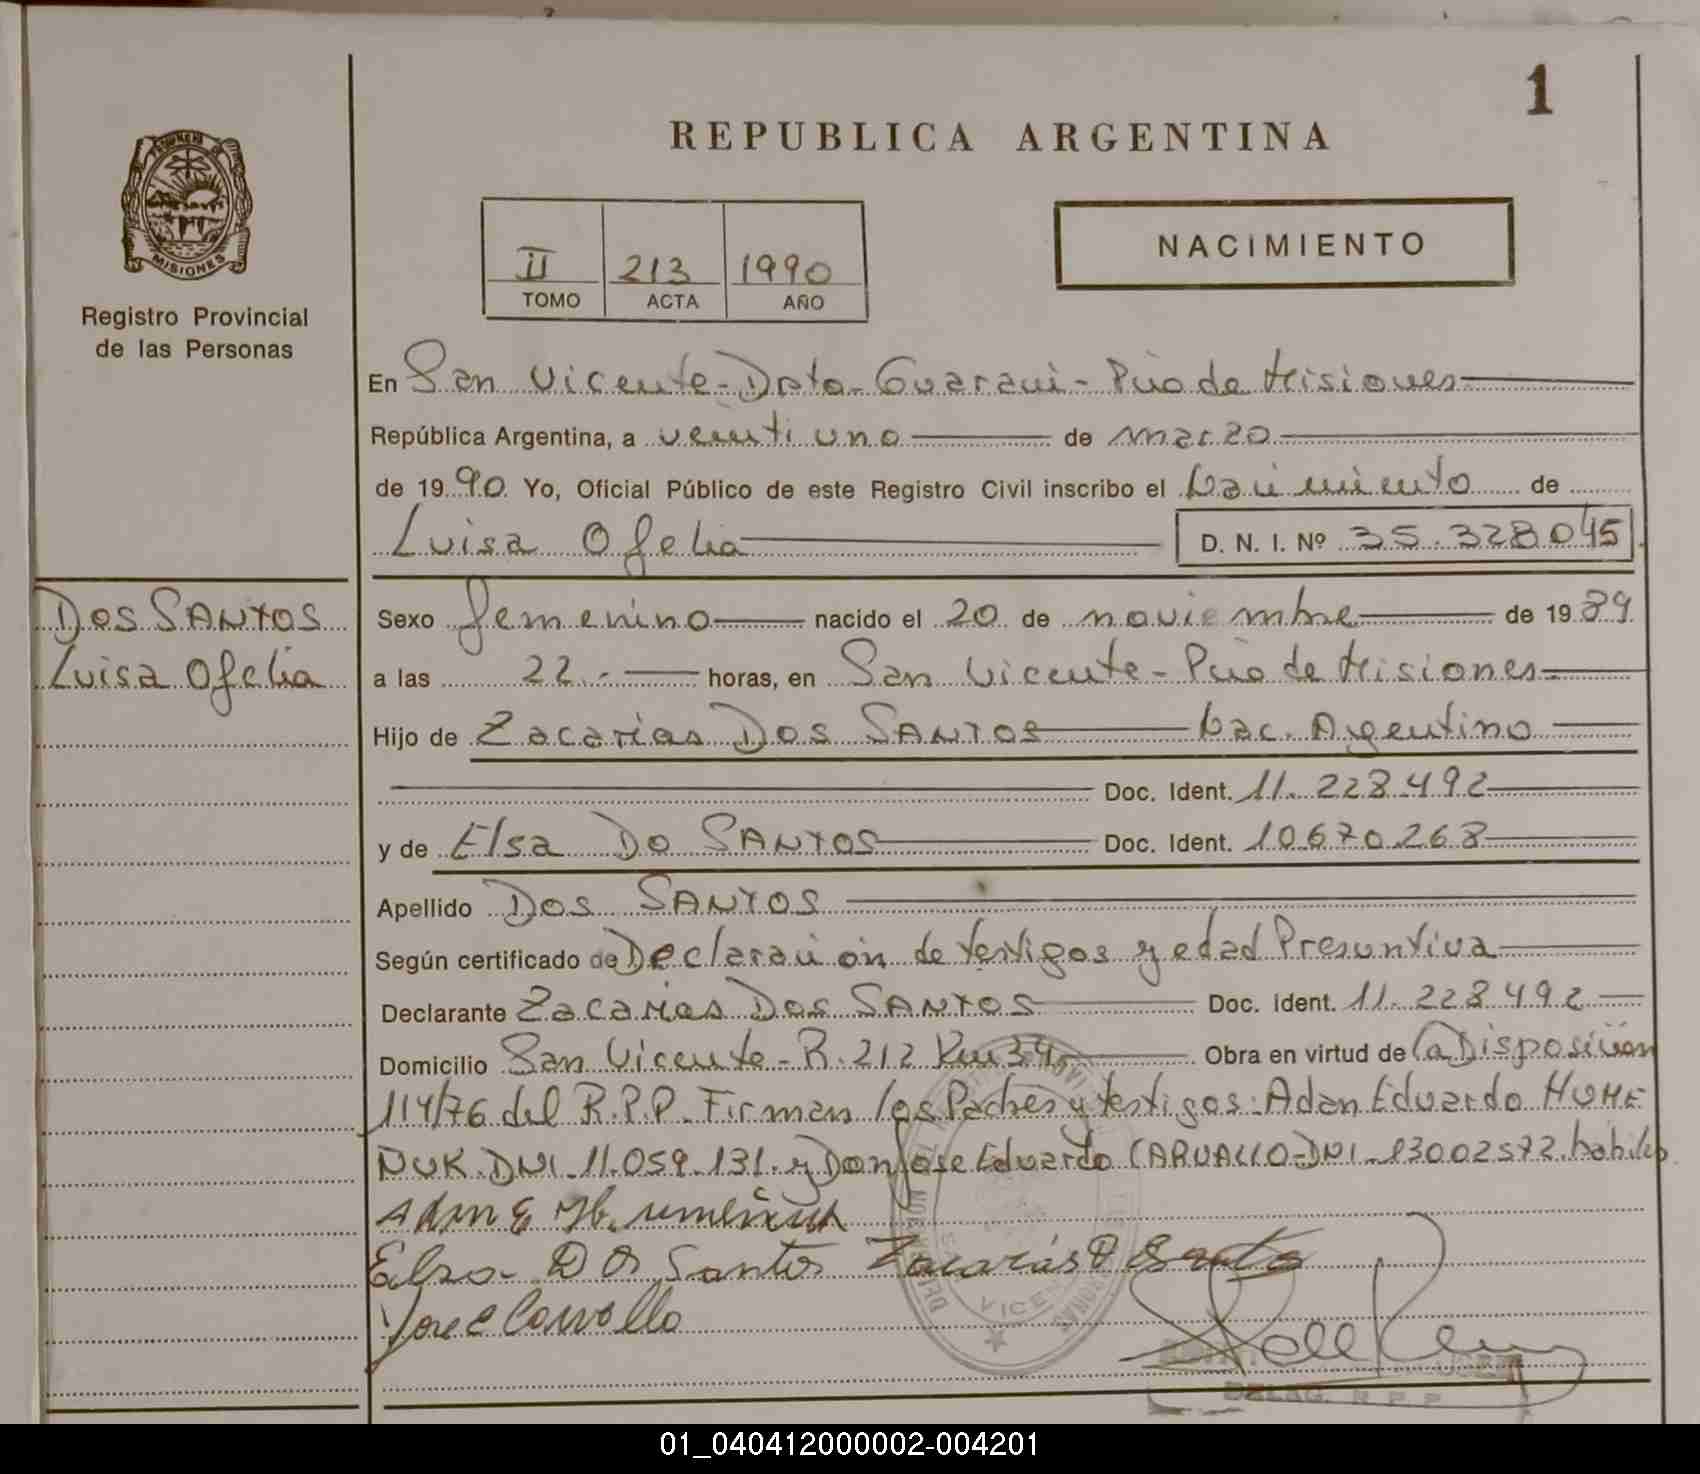 1
REPUBLICA ARGENTINA
MISIONES
Registro Provincial
de las Personas
II 213 1990
TOMO ACTA AÑO
NACIMIENTO
En San Vicente - Dpto - Guaraní - Pcia de Misiones
República Argentina, a veinti uno de marzo
de 1990 Yo, Oficial Público de este Registro Civil inscribo el Nacimiento de
Luisa Ofelia D. N. I. Nº 35.328045
Dos SANTOS
Luisa Ofelia
Sexo femenino nacido el 20 de noviembre de 1989
a las 22.- horas, en San Vicente - Pcia de Misiones
Hijo de Zacarias Dos SANTOS Nac. Argentino
Doc. Ident. 11.228.492
y de Elsa Do SANTOS Doc. Ident. 10670.268
Apellido Dos SANTOS
Según certificado de Declaración de testigos y edad Presuntiva
Declarante Zacarias Dos SANTOS Doc. Ident. 11.228.492
Domicilio San Vicente - R. 212 Km 34 Obra en virtud de la Disposición
114/76 del R.P.P. Firman los Padres y testigos: Adan Eduardo HUME
ÑUK. DNI. 11.059.131. y Don Jose Eduardo CARVALLO - DNI. 13002572. habiles
Adan E
Elsa Dos Santos Zacarás D Santo
Jose E Carvallo
VICEN
DELAG. R. P. P.
01_040412000002-004201